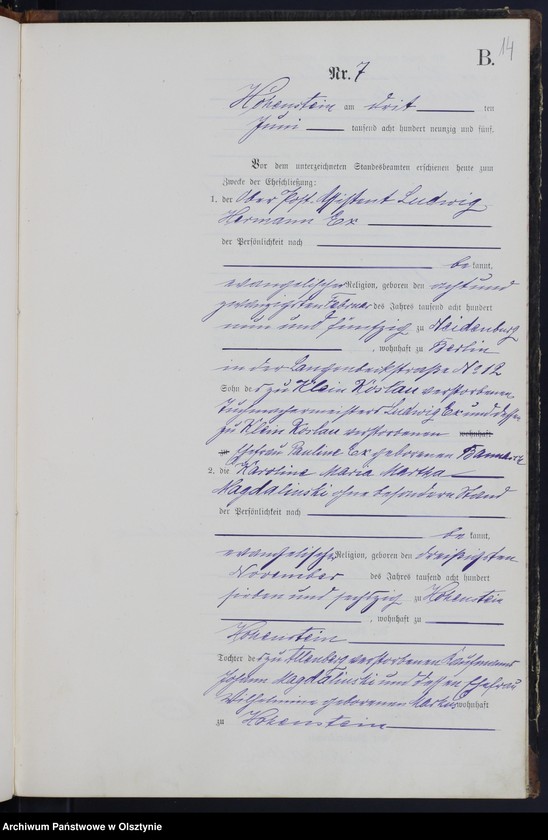 B. 14
Nr. 7
Hohenstein am drit ten
Juni tausend acht hundert neunzig und fünf.
Vor dem unterzeichneten Standesbeamten erschienen heute zum
Zwecke der Eheschließung:
1. der Ober Post Assistent Ludwig
Hermann Ex
der Persönlichkeit nach
be kannt,
evangelischer Religion, geboren den acht und
zwanzigsten Februar des Jahres tausend acht hundert
neun und fünfzig zu Neidenburg
, wohnhaft zu Berlin
in der Langenbeckstraße No 12
Sohn des zu Klein Koslau verstorbenen
Tuchmachermeisters Ludwig Ex und dessen
zu Klein Koslau verstorbenen wohnhaft
zu Ehefrau Pauline Ex geborenen
2. die Karoline Maria Martha
Magdalinski ohne besondern Stand
der Persönlichkeit nach
be kannt,
evangelischer Religion, geboren den dreißigsten
November des Jahres tausend acht hundert
sieben und sechzig zu Hohenstein
, wohnhaft zu
Hohenstein
Tochter des zu verstorbenen Kaufmanns
Johann Magdalinski und dessen Ehefrau
Wilhelmine geborenen wohnhaft
zu Hohenstein
Archiwum Państwowe w Olsztynie